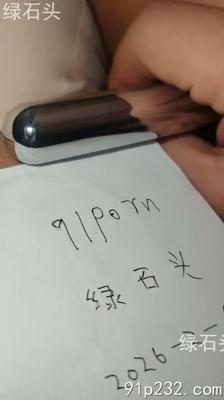 绿石头
91porn
绿石头
绿石头
2026-2-
91p232.com